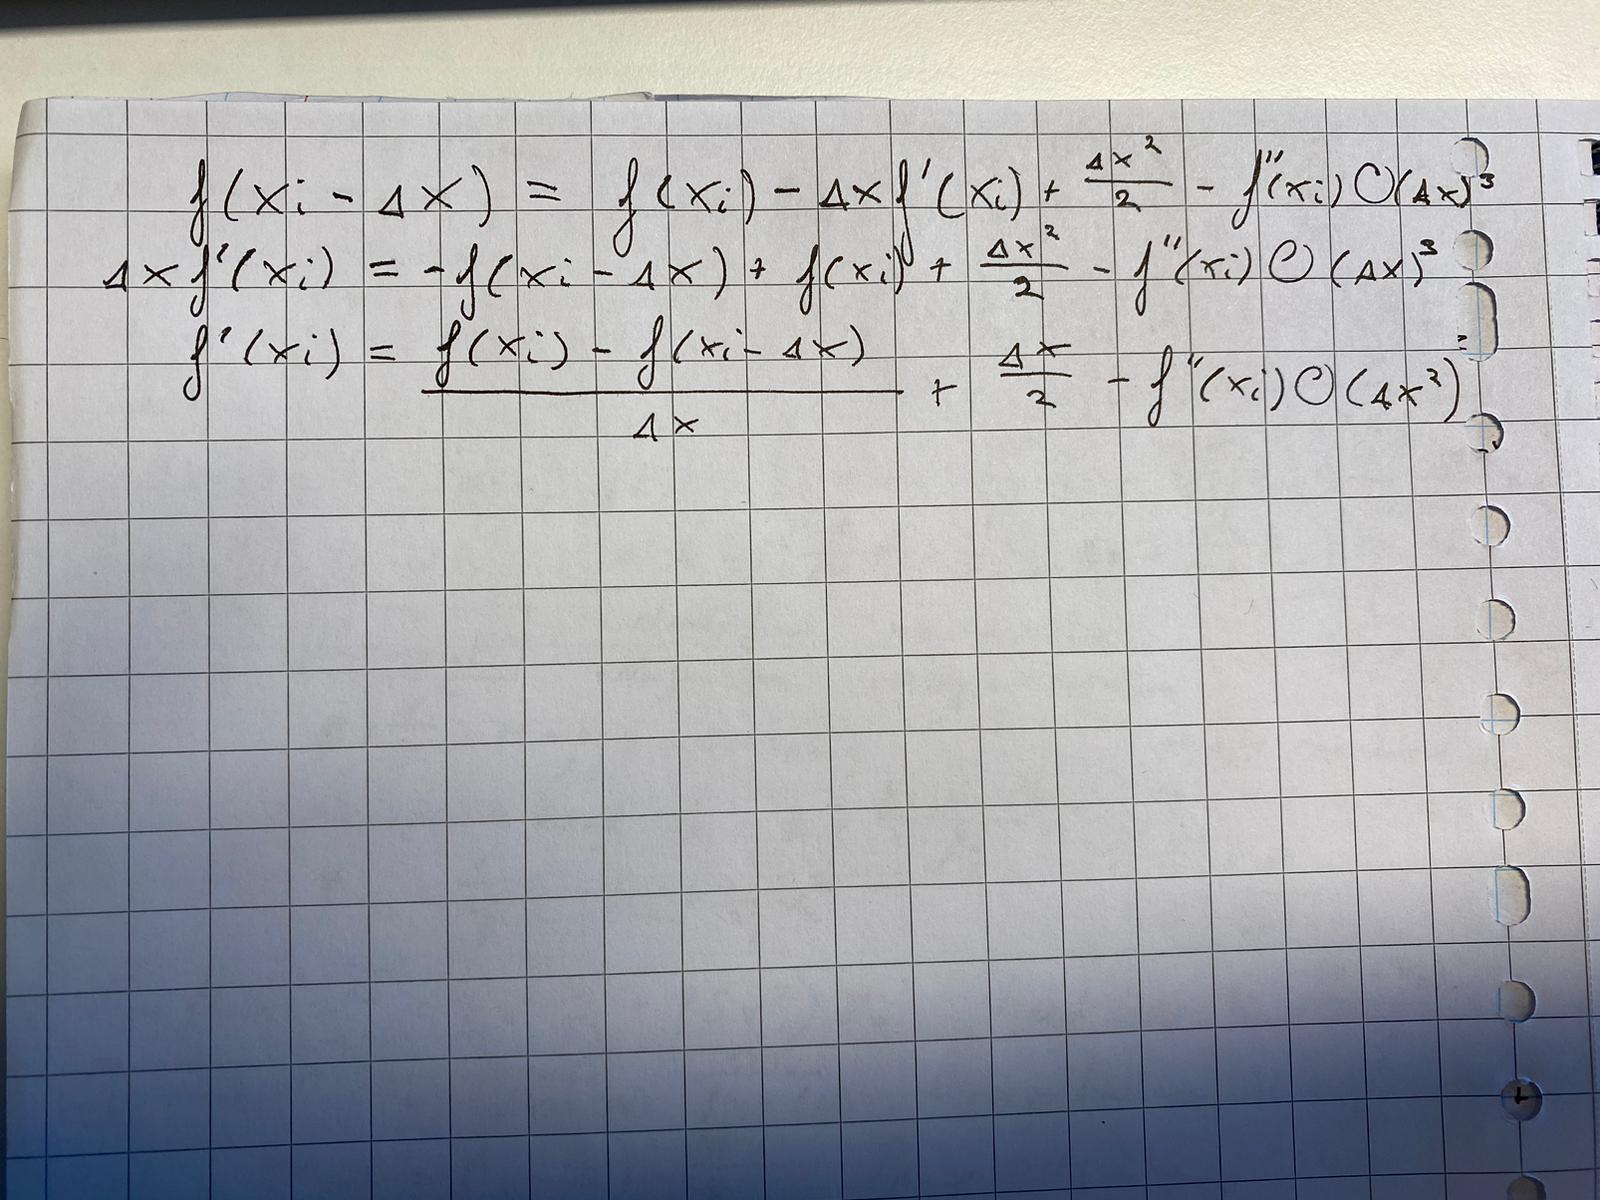 f(xi - Δx) = f(xi) - Δx f'(xi) + Δx²/2 - f''(xi) O(Δx)³
Δx f'(xi) = -f(xi - Δx) + f(xi) + Δx²/2 - f''(xi) O(Δx)³
f'(xi) = (f(xi) - f(xi - Δx))/Δx + Δx/2 - f''(xi) O(Δx²)